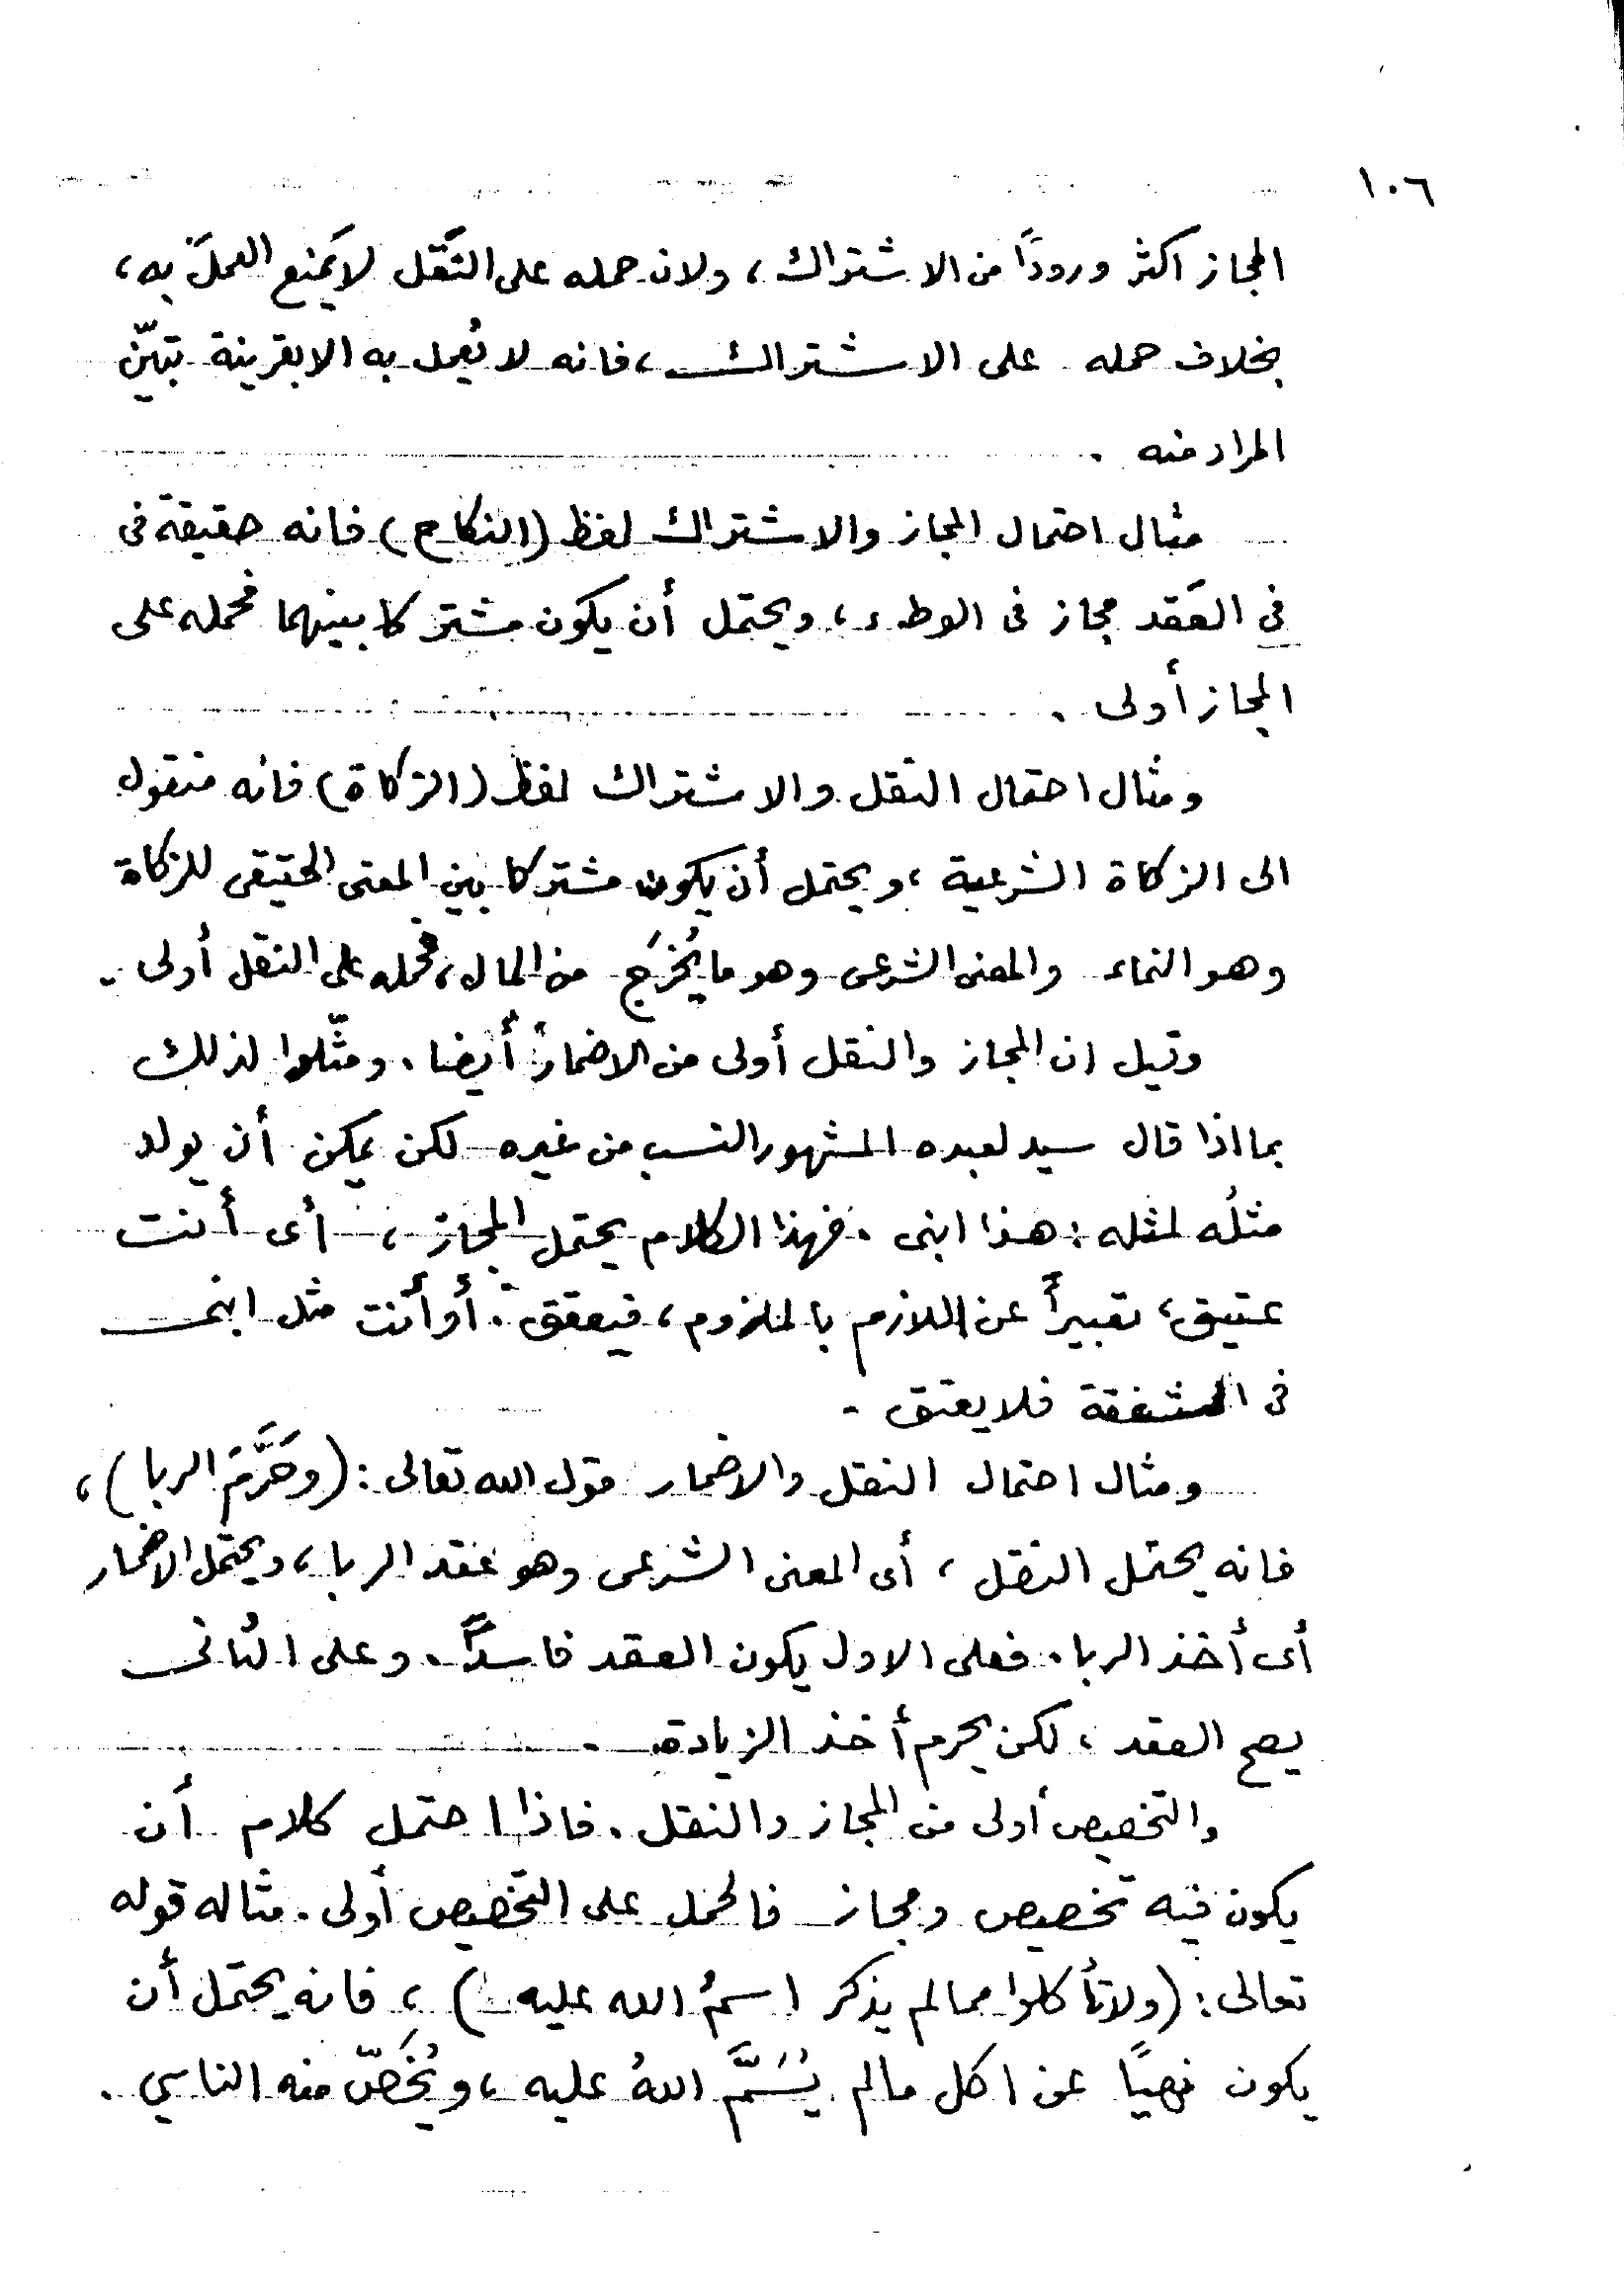 ١٠٦
المجاز اكثر ورودًا من الاشتراك، ولان حمله على النَقل لا يَمنع العملَ به،
بخلاف حمله على الاشتراك، فانه لا يُعمل به الا بقرينة تبيّن
المراد منه .
مثال احتمال المجاز والاشتراك لفظ (النكاح) فانه حقيقة فى
فى العَقد مجاز فى الوطء، ويحتمل أن يكون مشتركا بينهما فحمله على
المجاز أولى .
ومثال احتمال النقل والاشتراك لفظ (الزكاة) فانه منقول
الى الزكاة الشرعية، ويحتمل أن يكون مشتركا بين المعنى الحقيقى للزكاة
وهو النماء والمعنى الشرعى وهو ما يُخرَج من المال، فحمله على النقل أولى .
وقيل ان المجاز والنقل أولى من الاضمار أيضا . ومثّلوا لذلك
بما اذا قال سيد لعبده المشهور النسب من غيره لكن يمكن أن يولد
مثلُه لمثله : هذا ابنى . فهذا الكلام يحتمل المجاز، أى أنت
عتيق، تعبيراً عن اللازم بالملزوم، فيعتق . أو أنت مثل ابنى
فى الشفقة فلا يعتق .
ومثال احتمال النقل والاضمار قول الله تعالى : (وحَرَّمَ الربا)،
فانه يحتمل النقل، أى المعنى الشرعى وهو عقد الربا، ويحتمل الاضمار
أى أخذ الربا . فعلى الاول يكون العقد فاسداً . وعلى الثانى
يصح العقد، لكن يحرم أخذ الزيادة .
والتخصيص أولى من المجاز والنقل . فاذا احتمل كلام أن
يكون فيه تخصيص ومجاز فالحمل على التخصيص أولى . مثاله قوله
تعالى : (ولا تأكلوا مما لم يذكر اسمُ الله عليه)، فانه يحتمل أن
يكون نهيًا عن اكل مالم يُسَمَّ اللهُ عليه، ويُخَصّ منه الناسي .